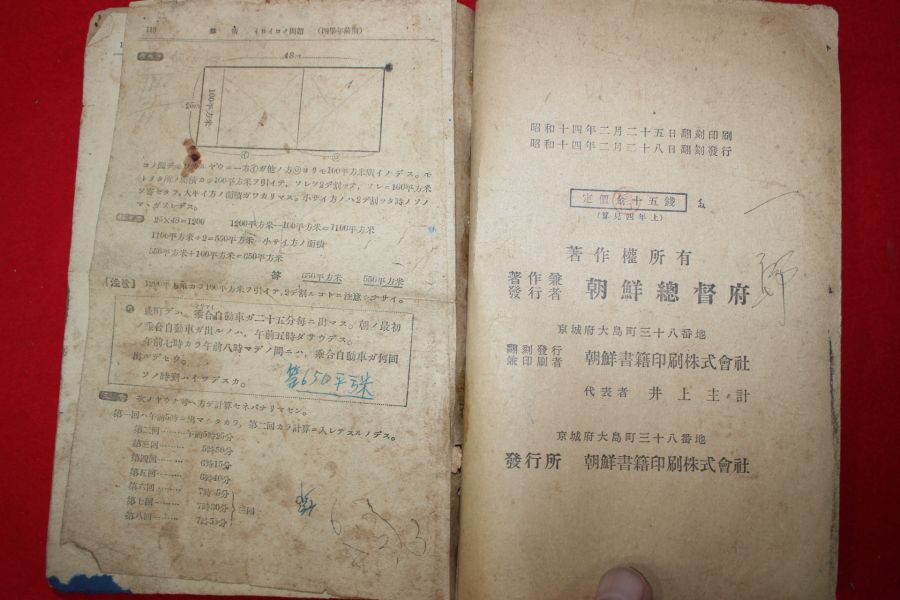 118 算術 イロイロノ問題 (四學年前期)
48m
100平方米
25m
㋑
㋺
コノ圖デモワカルヤウニ一方㋑ガ他ノ方㋺ヨリモ100平方米廣イノデス。モ
トタカラ100平方米ヲ引イテ、ソレヲ2デ割ッテ、ソレニ100平方米
ヲ寄セタラ、大キイ方ノ面積ガワカリマス。小サイ方ノハ2デ割ッタ時ノソノ
マヽガソレデス。
25×48=1200 1200平方米-100平方米=1100平方米
1100平方米÷2=550平方米…小サイ方ノ面積
550平方米+100平方米=650平方米
答 650平方米 550平方米
【注意】 1200平方米カラ100平方米ヲ引イテ、2デ割ルコトニ注意シナサイ。
或町デハ、乘合自動車ガ二十五分每ニ出マス。朝ノ最初
ノ乘合自動車ガ出ルノハ、午前五時ダサウデス。
午前七時カラ午前八時マデノ間ニハ、乘合自動車ガ何回
出ルデセウ。
ソノ時刻ハイツデスカ。
答650平方米
次ノヤウナ考ヘ方デ計算セネバナリマセン。
第一回ハ午前5時ニ出マシタカラ、第二回カラ計算ニ入レテユルノデス。
第二回……午前5時25分
第三回…… 5時50分
第四回…… 6時15分
第五回…… 6時40分
第六回…… 7時5分
第七回…… 7時30分 三回
第八回…… 7時55分
昭和十四年二月二十五日翻刻印刷
昭和十四年二月二十八日翻刻發行
定價金十五錢
(算兒四年上)
著作權所有
著作兼發行者 朝鮮總督府
京城府大島町三十八番地
翻刻發行兼印刷者 朝鮮書籍印刷株式會社
代表者 井上主計
京城府大島町三十八番地
發行所 朝鮮書籍印刷株式會社